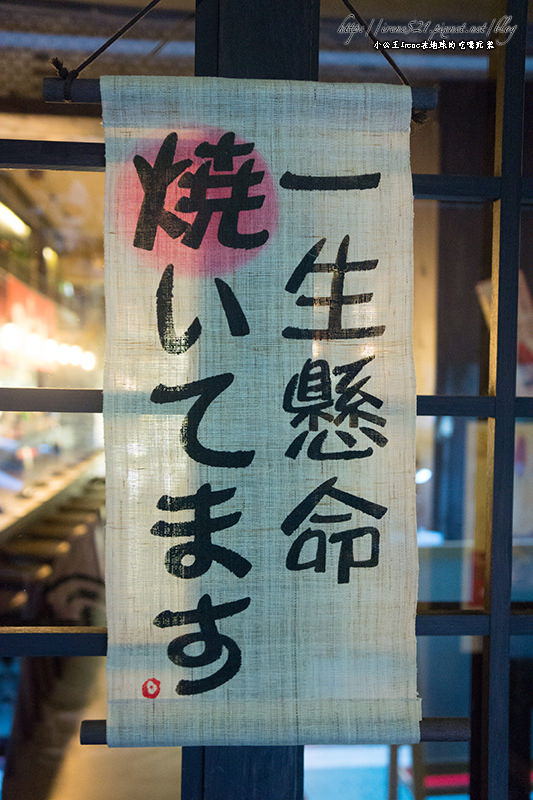 https://irene521.pixnet.net/blog
小公主Irene在地球的吃喝玩樂
一生懸命
焼いてます